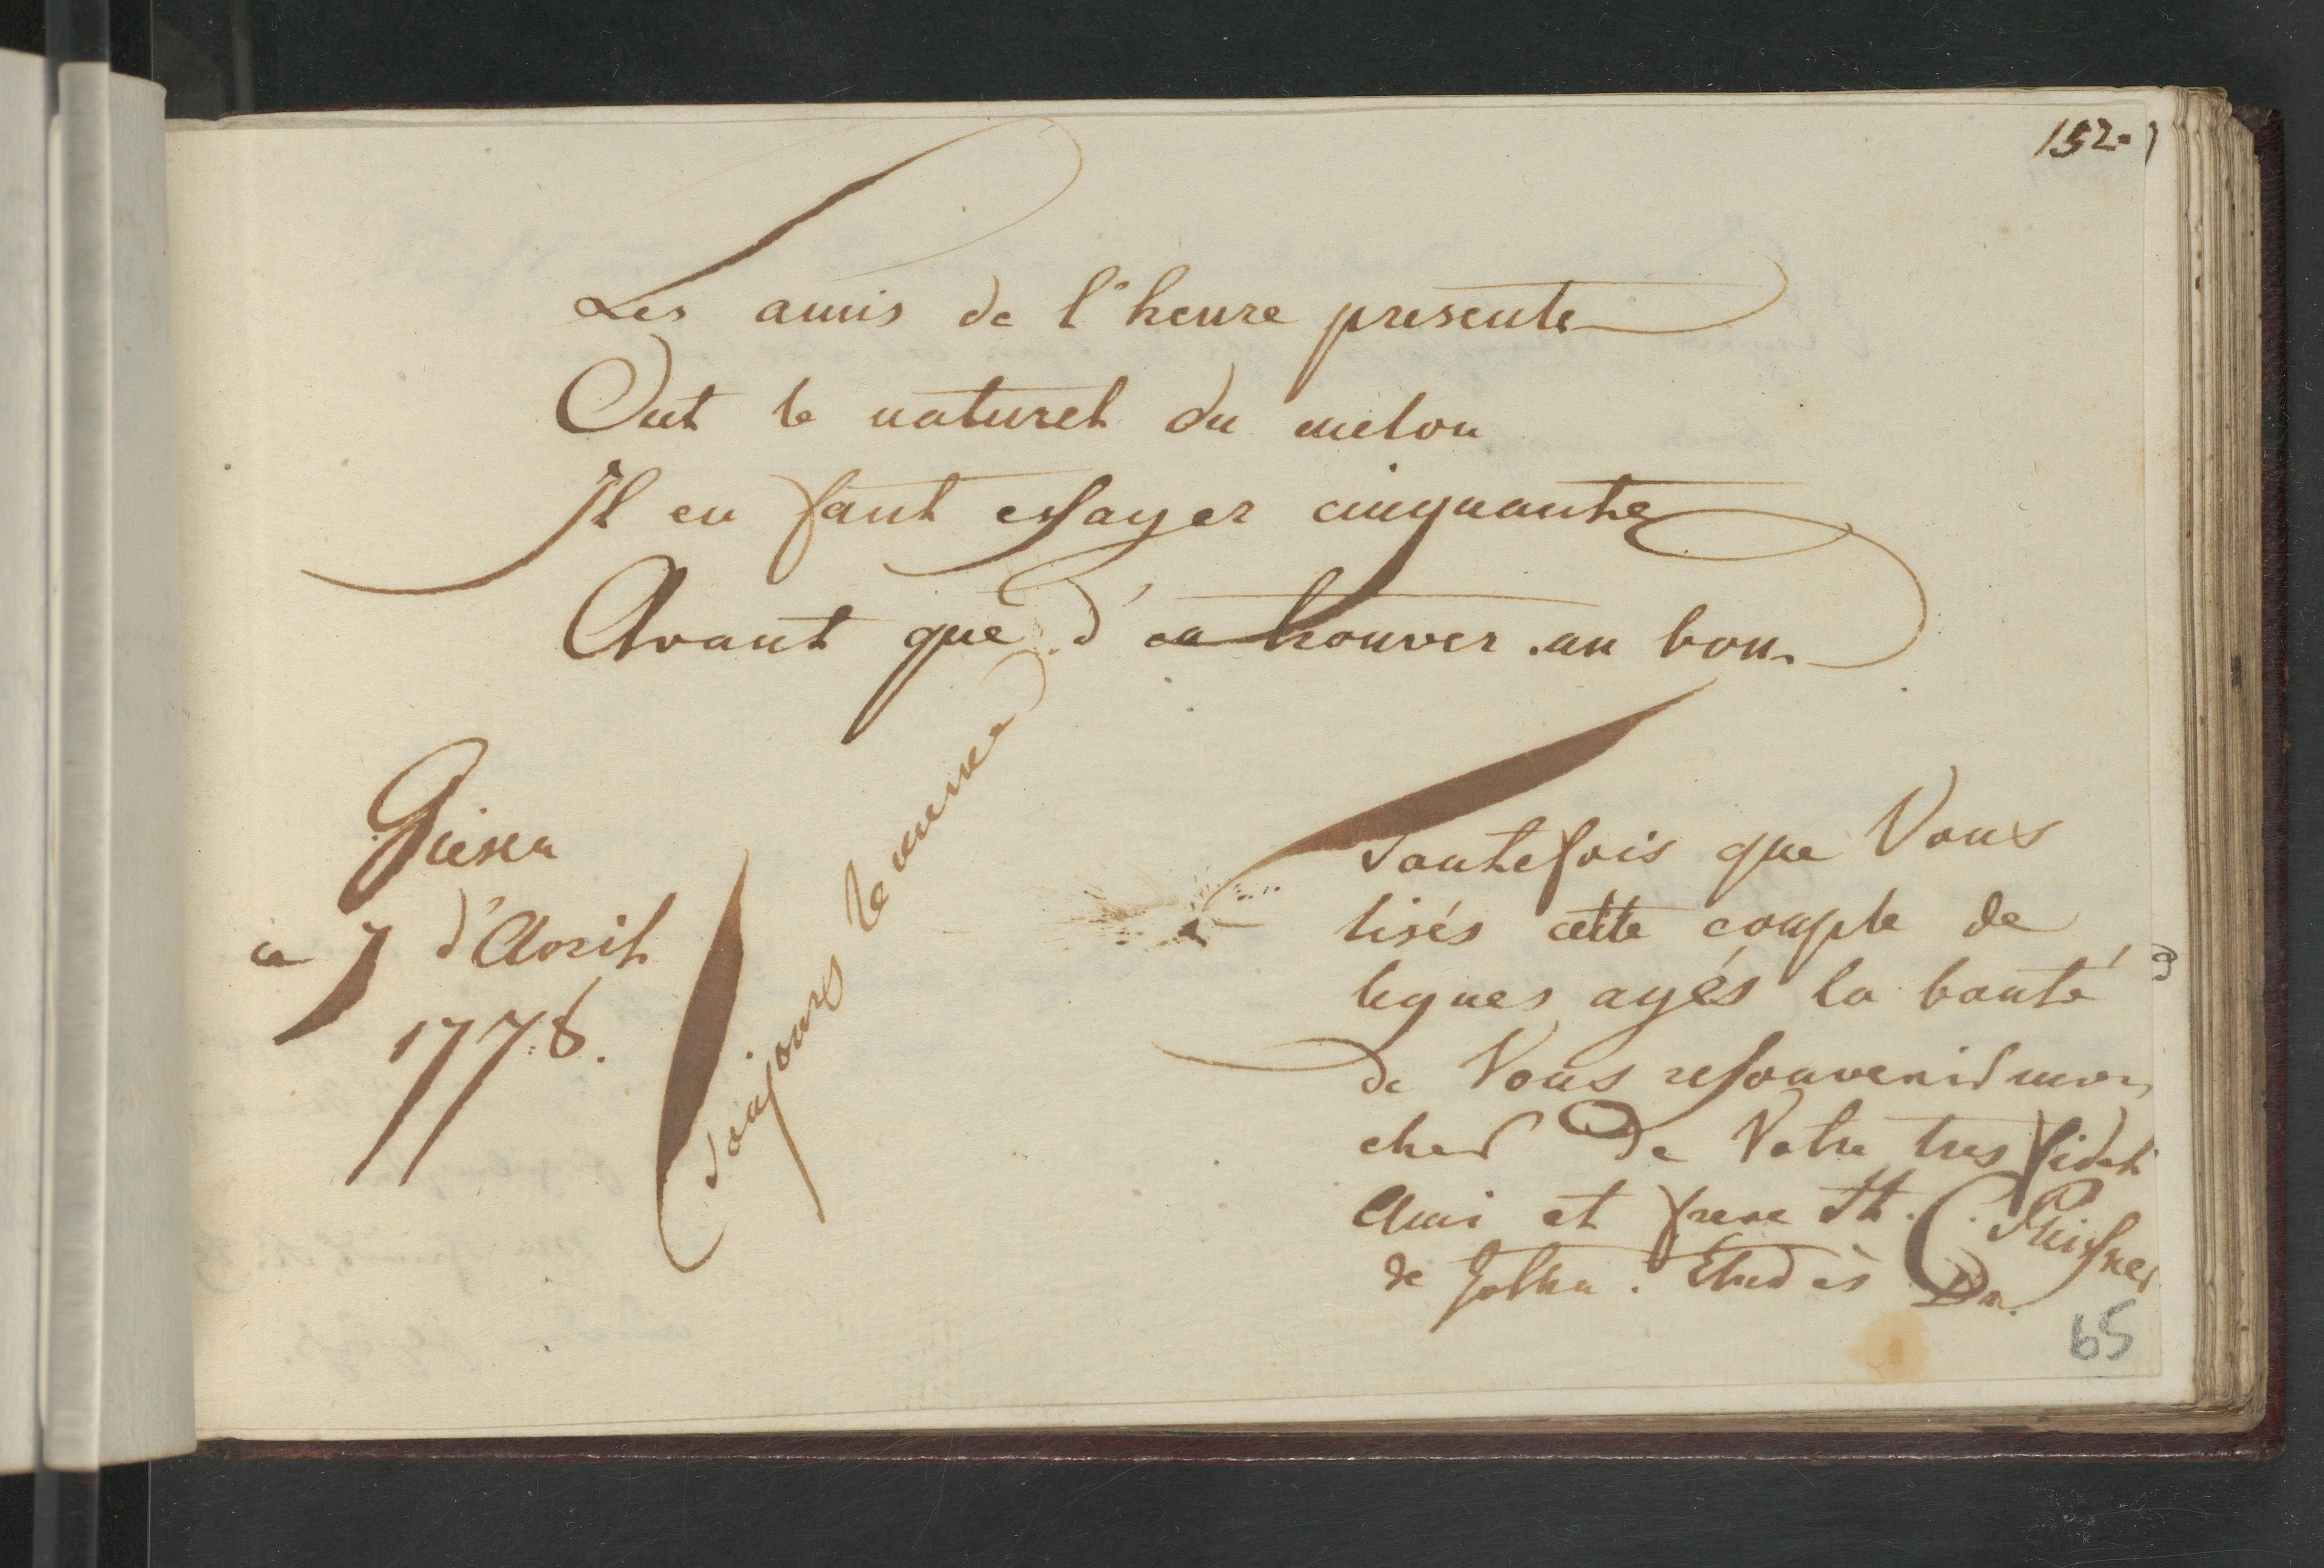 152.
Les amis de l'heure presente
Ont le naturel du melon
Il en faut essayer cinquante
Avant que d'en trouver un bon.
Giesen
ce 7 d'Avril
1778.
toujours le meme
Toutefois que Vous
lisés cette couple de
lignes ayés la bonté
de Vous ressouvenir mon
cher de Votre tres fidel
Ami et frere Th. C.
de Gotha. Etud es Dr.
65